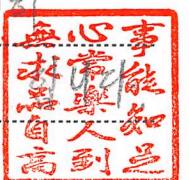 事能知足
心常樂人到
無求品自高